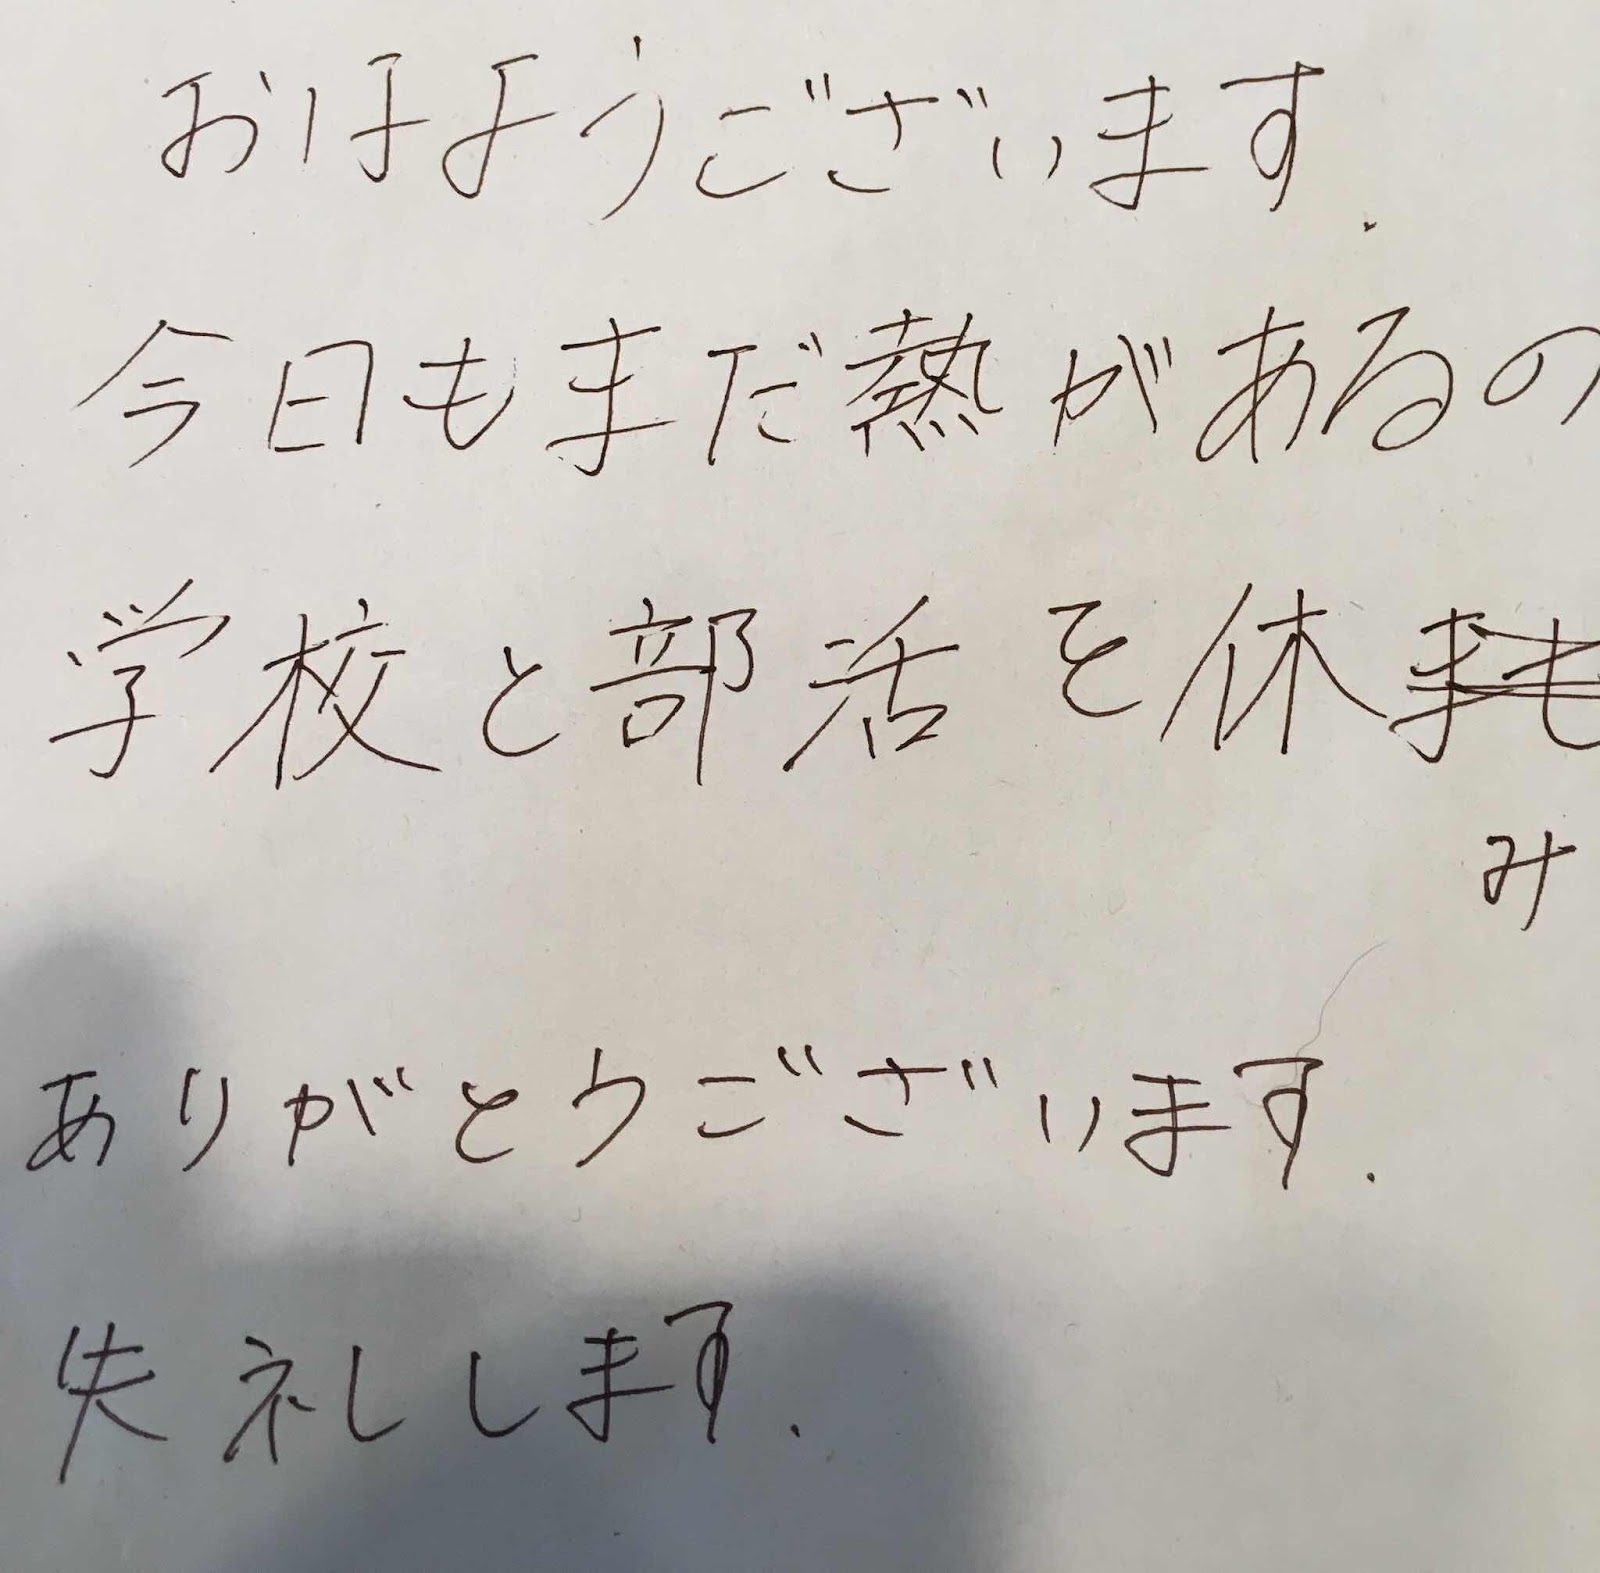 おはようございます.
今日もまだ熱があるの
学校と部活を休
み
ありがとうございます.
失礼します.